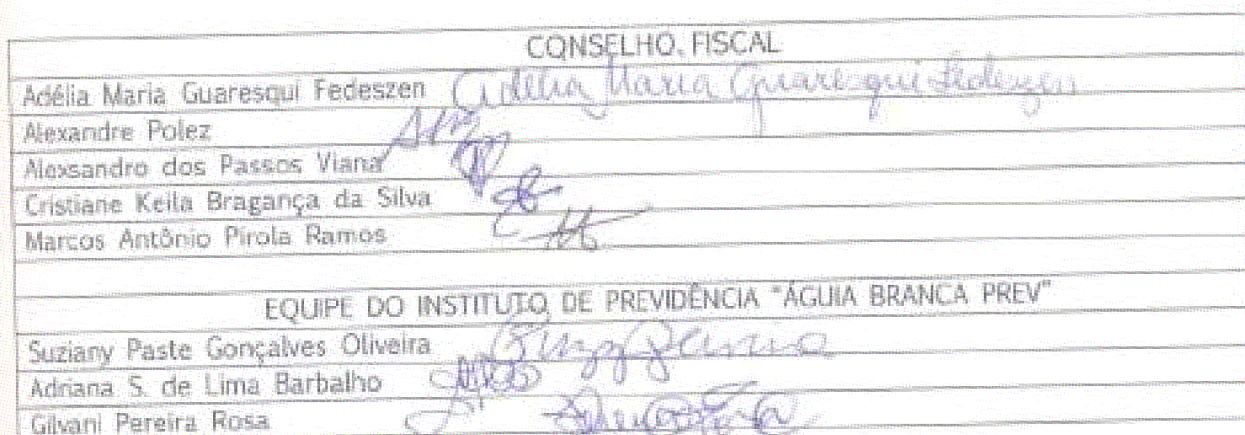 CONSELHO FISCAL
Adélia Maria Guaresqui Fedeszen Adélia Maria Guaresqui Fedeszen
Alexandre Polez
Alexsandro dos Passos Viana
Cristiane Keila Bragança da Silva
Marcos Antônio Pirola Ramos
EQUIPE DO INSTITUTO DE PREVIDÊNCIA "ÁGUIA BRANCA PREV"
Suziany Paste Gonçalves Oliveira
Adriana S. de Lima Barbalho
Gilvani Pereira Rosa